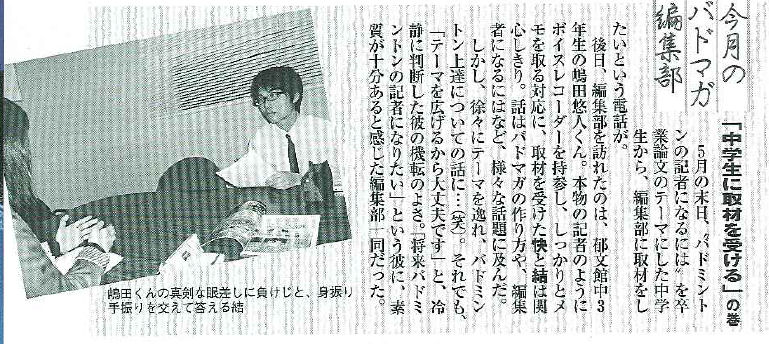 今月の
バドマガ
編集部
「中学生に取材を受ける」の巻
5月の末日、〝バドミント
ンの記者になるには〟を卒
業論文のテーマにした中学
生から、編集部に取材をし
たいという電話が。
後日、編集部を訪れたのは、郁文館中3
年生の嶋田悠人くん。本物の記者のように
ボイスレコーダーを持参し、しっかりとメ
モを取る対応に、取材を受けた快と結は関
心しきり。話はバドマガの作り方や、編集
者になるにはなど、様々な話題に及んだ。
しかし、徐々にテーマを逸れ、バドミン
トン上達についての話に…(笑)。それでも、
「テーマを広げるから大丈夫です」と、冷
静に判断した彼の機転のよさ。「将来バドミ
ントンの記者になりたい」という彼に、素
質が十分あると感じた編集部一同だった。
嶋田くんの真剣な眼差しに負けじと、身振り
手振りを交えて答える結